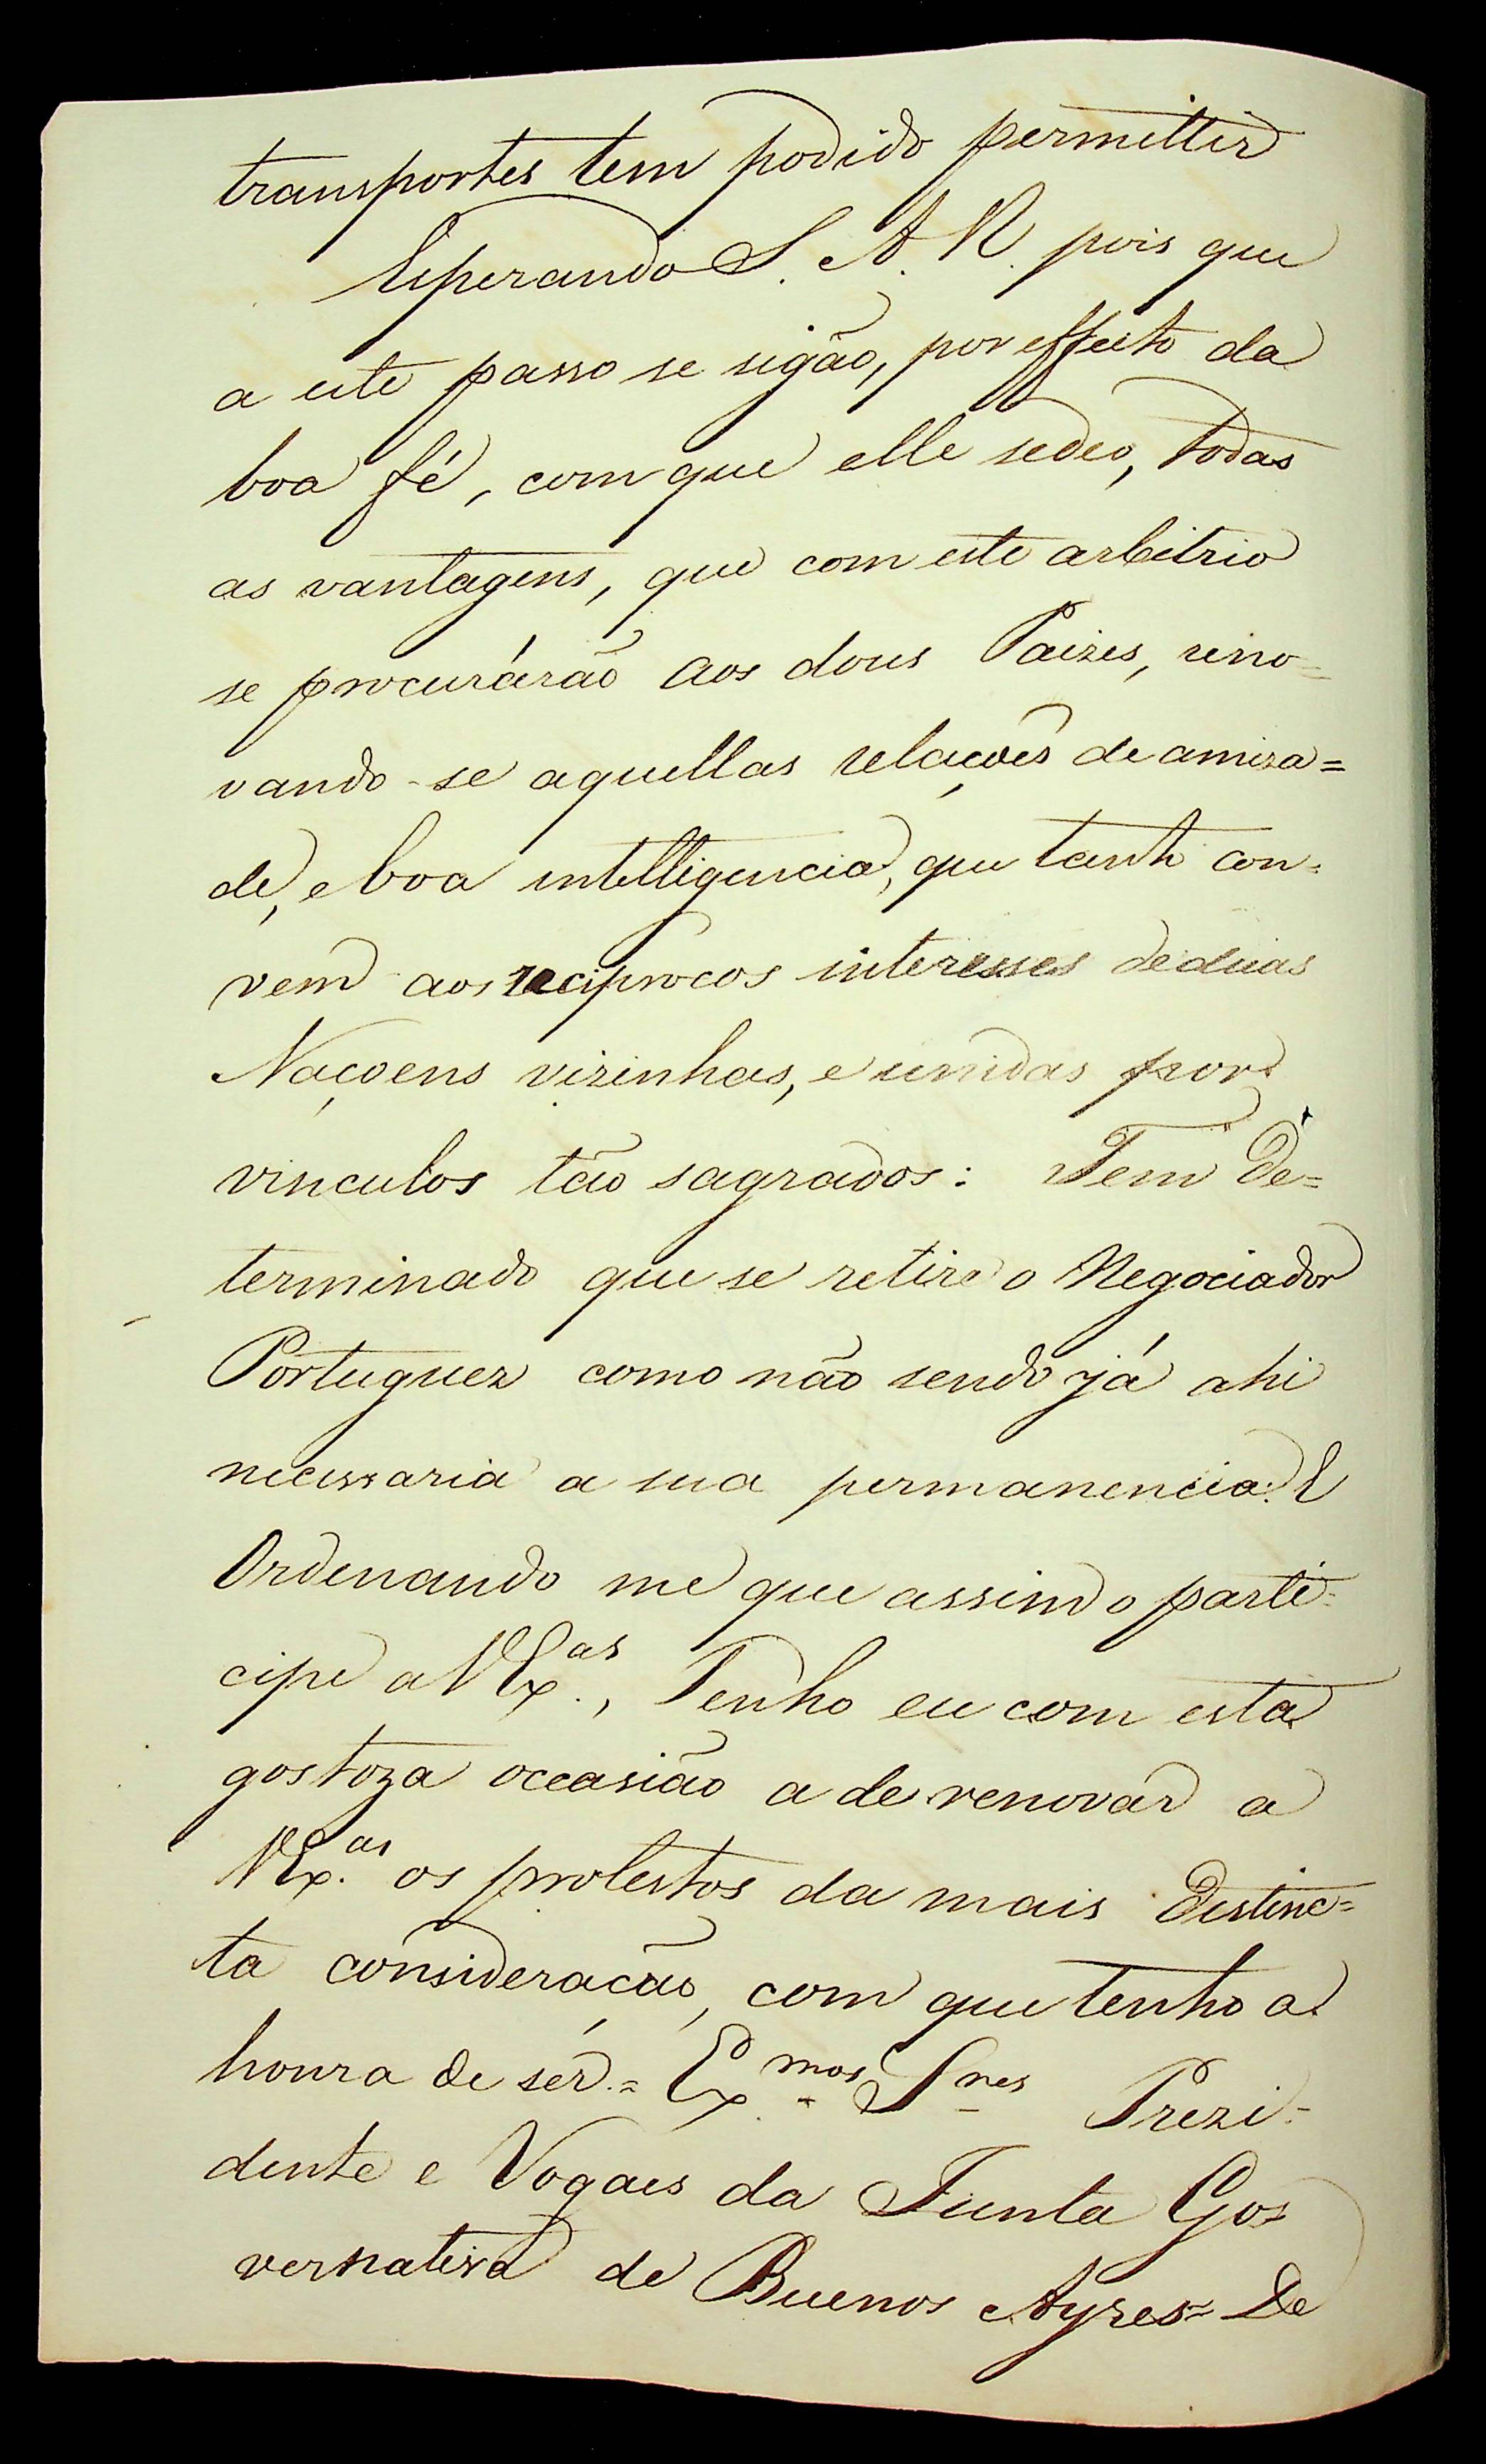 transportes tem podido permittir
Esperando S. A. R. pois que
a este passo se sigão, por effeito da
boa fé, com que elle sedeo, todas
as vantagens, que com este arbitrio
se procurárão aos dous Paizes, reno=
vando-se aquellas relações de amiza=
de, e boa intelligencia, que tanto con=
vem aos reciprocos interesses de duas
Naçoens vizinhas, e unidas por
vinculos tão sagrados: Tem De=
terminado que se retire o Negociador
Portuguez como não sendo já ahi
necessaria a sua permanencia: E
Ordenando me que assim o parti=
cipe a VEx.as, Tenho eu com esta
gostoza occasião a de renovar a
VEx.as os protestos da mais Distinc=
ta consideração, com que tenho a
honra de sêr.= Ex.mos Snes Prezi=
dente e Vogaes da Junta Go=
vernativa de Buenos Ayres= De